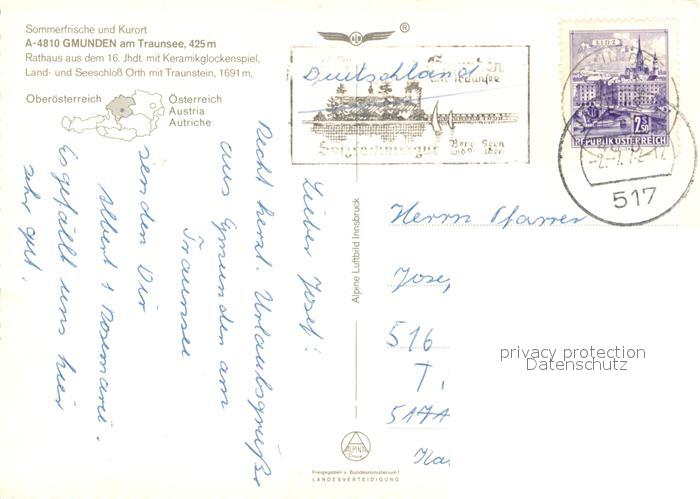 Sommerfrische und Kurort
A-4810 GMUNDEN am Traunsee, 425 m
Rathaus aus dem 16. Jhdt. mit Keramikglockenspiel,
Land- und Seeschloß Orth mit Traunstein, 1691 m,
Oberösterreich
Österreich
Austria
Autriche
Lieber Josef!
Recht herzl. Urlaubsgrüße
aus Gmunden am
Traunsee
senden Dir
Albert & Rosemarie.
Es gefällt uns hier
sehr gut.
Alpine Luftbild Innsbruck
ALPINE
Freigegeben v. Bundesministerium f.
LANDESVERTEIDIGUNG
®
Deutschland
Traunsee
Salzkammergut
Berg Seen
LINZ
2.50
REPUBLIK ÖSTERREICH
517
Herrn Pfarrer
Josef
516
T.
517
privacy protection
Datenschutz